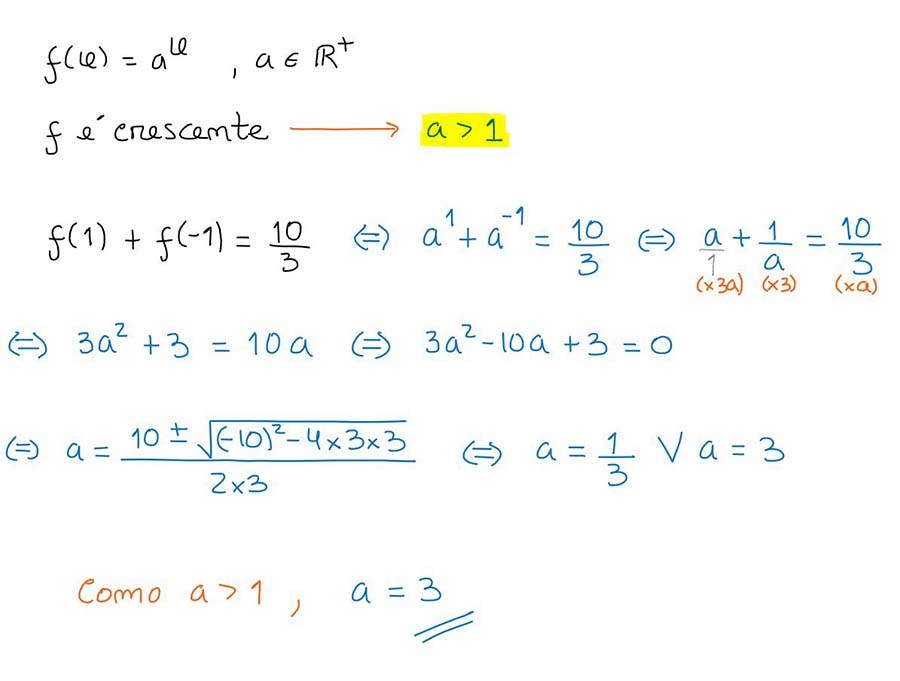 f(x) = a^x , a ∈ ℝ⁺
f é crescente ⟶ a > 1
f(1) + f(-1) = 10/3 ⇔ a^1 + a^-1 = 10/3 ⇔ a/1 + 1/a = 10/3
(×3a) (×3) (×a)
⇔ 3a² + 3 = 10a ⇔ 3a² - 10a + 3 = 0
⇔ a = (10 ± √((-10)² - 4×3×3))/(2×3) ⇔ a = 1/3 ∨ a = 3
Como a > 1 , a = 3